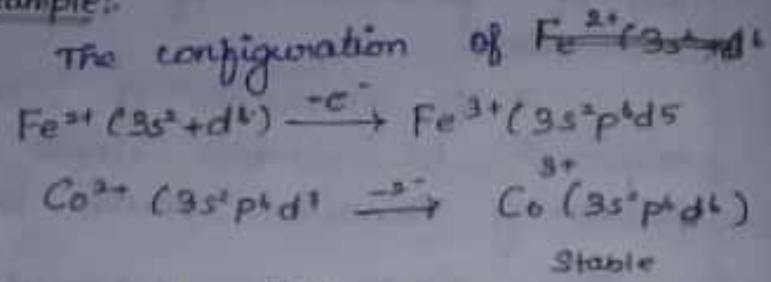 The configuration of Fe²⁺(3s
Fe²⁺ (3s²+d⁶) -e⁻→ Fe³⁺(3s²p⁶d5
Co²⁺ (3s²p⁶d⁷ → Co³⁺(3s²p⁶d⁶)
Stable